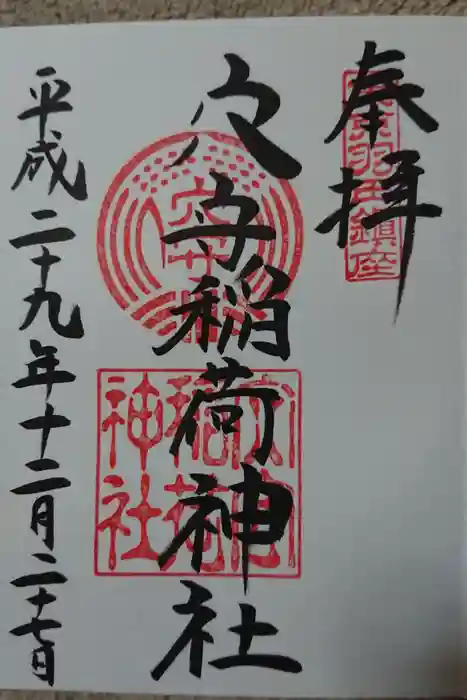 奉拝
東京羽田鎮座
穴守稲荷神社
穴守
稲荷
神社
平成二十九年十二月二十七日